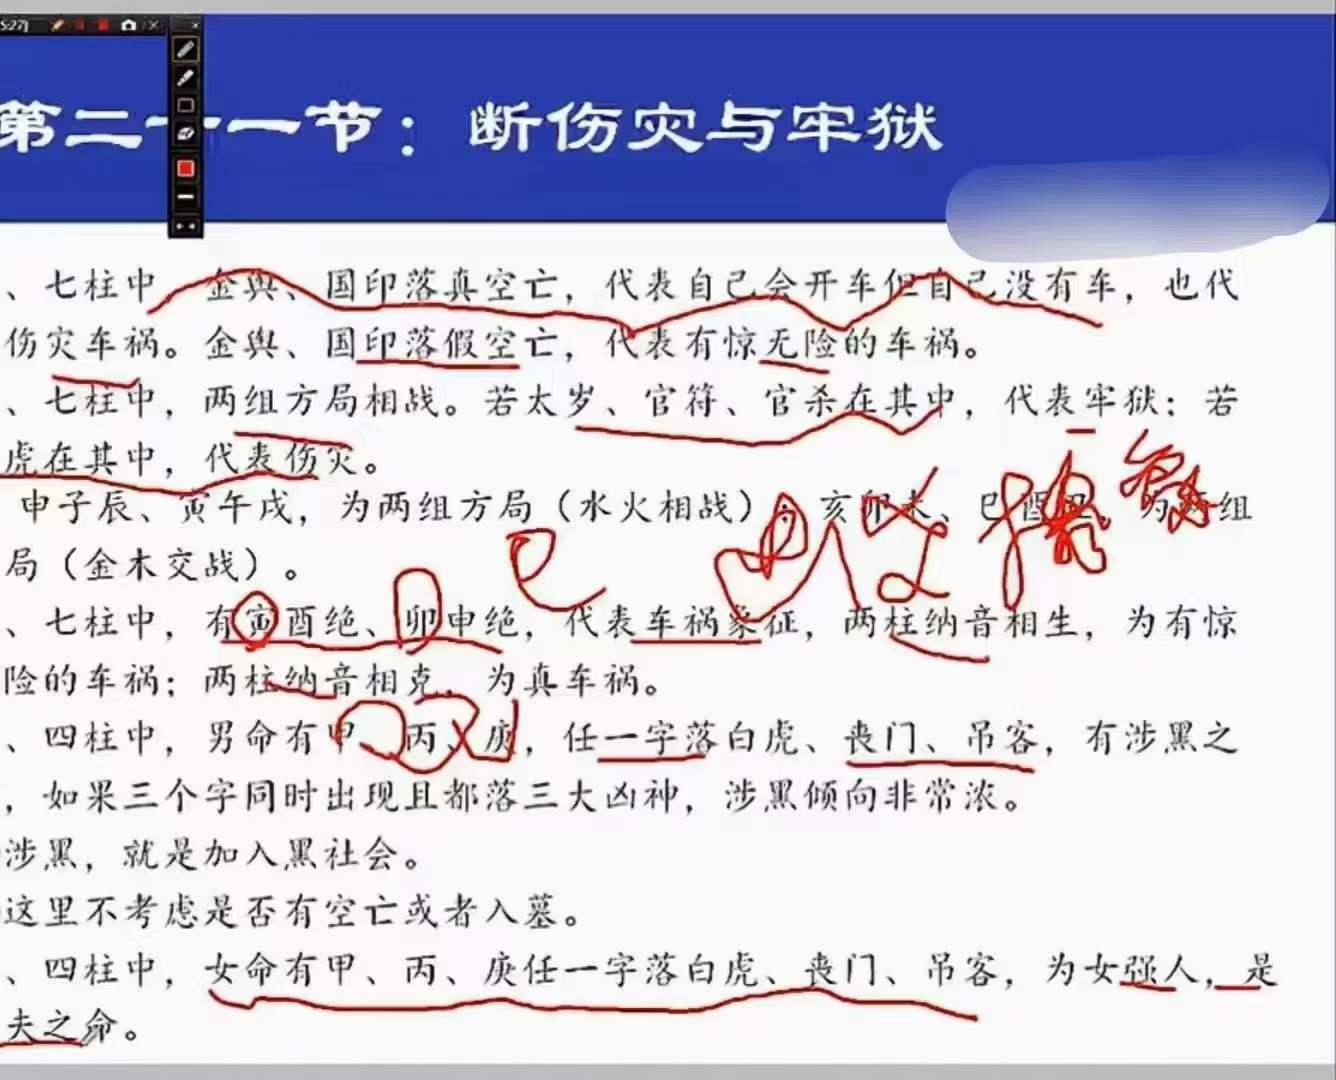 5:27]
第二十一节：断伤灾与牢狱
、七柱中，金舆、国印落真空亡，代表自己会开车但自己没有车，也代
伤灾车祸。金舆、国印落假空亡，代表有惊无险的车祸。
、七柱中，两组方局相战。若太岁、官符、官杀在其中，代表牢狱；若
虎在其中，代表伤灾。
申子辰、寅午戌，为两组方局（水火相战）；亥卯未、巳酉丑，为两组
局（金木交战）。
、七柱中，有寅酉绝、卯申绝，代表车祸象征，两柱纳音相生，为有惊
险的车祸；两柱纳音相克，为真车祸。
、四柱中，男命有甲、丙、庚，任一字落白虎、丧门、吊客，有涉黑之
，如果三个字同时出现且都落三大凶神，涉黑倾向非常浓。
涉黑，就是加入黑社会。
这里不考虑是否有空亡或者入墓。
、四柱中，女命有甲、丙、庚任一字落白虎、丧门、吊客，为女强人，是
夫之命。